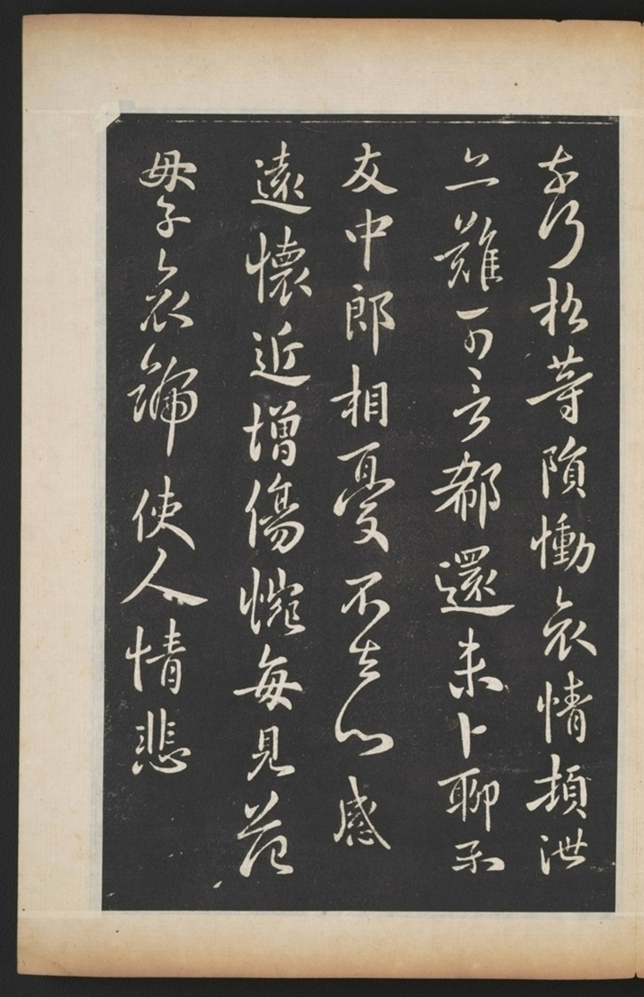 奇乃松等隕慟哀情頓泄
亦難可言郗還未卜聊示
友中郎相憂不去心感
遠懷近增傷惋每見范
母子哀號使人情悲